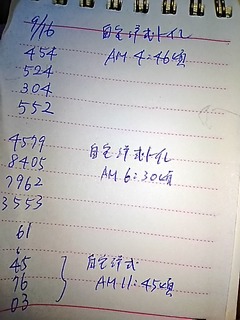 9/16 自宅
454 AM 4:46頃
524
304
552
4579
8405 自宅
7962 AM 6:30頃
3553
61
45 自宅
76 AM 11:45頃
03